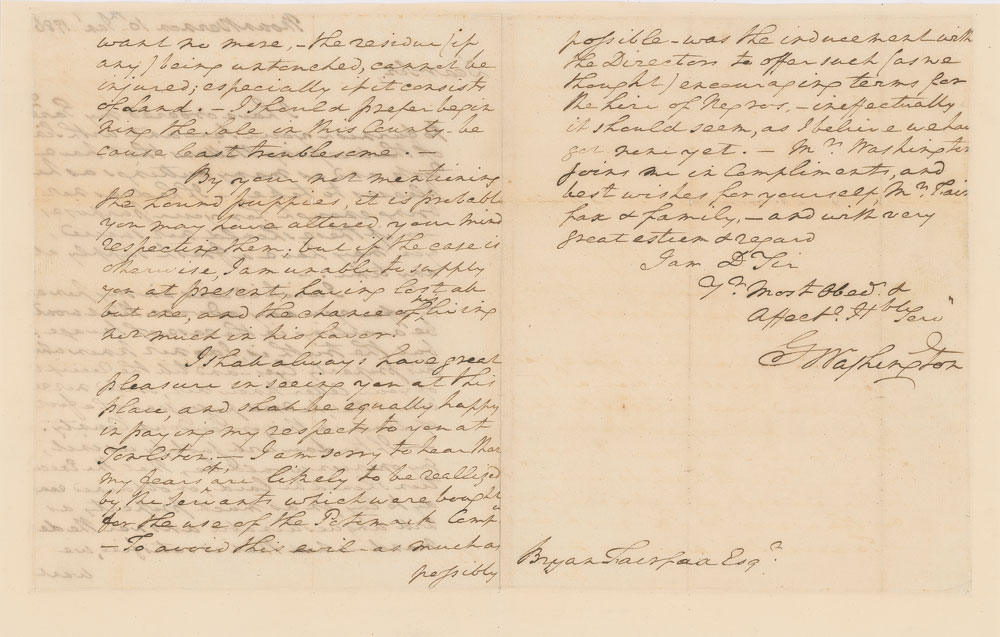 want no more, - the residue (if
any) being untouched, cannot be
injured; especially if it consists
of Land. - I should prefer begin
ning the sale in this County - be
cause least troublesome. -
By your not mentioning
the hound puppies, it is probable
you may have altered your mind
respecting them; but if the case is
otherwise, I am unable to supply
you at present, having lost all
but one, and the chance of his living
not much in his favor.
I shall always have great
pleasure in seeing you at this
place and shall be equally happy
in paying my respects to you at
Towlston. - I am sorry to hear that
my fears are likely to be reallized
by the Servants which were bought
for the use of the Potomack Compy
- To avoid this evil - as much as
possibly
possible - was the inducement with
the Directors to offer such (as we
thought) encouraging terms for
the hire of Negros, - ineffectually
it should seem, as I believe we have
got none yet. - Mrs. Washington
joins me in Compliments, and
best wishes for yourself, Mrs. Fair
fax & family, - and with very
great esteem & regard
I am Dr Sir
Yr. Most Obedt. &
Affecte. Hble Servt
G Washington
Bryan Fairfax Esqr.